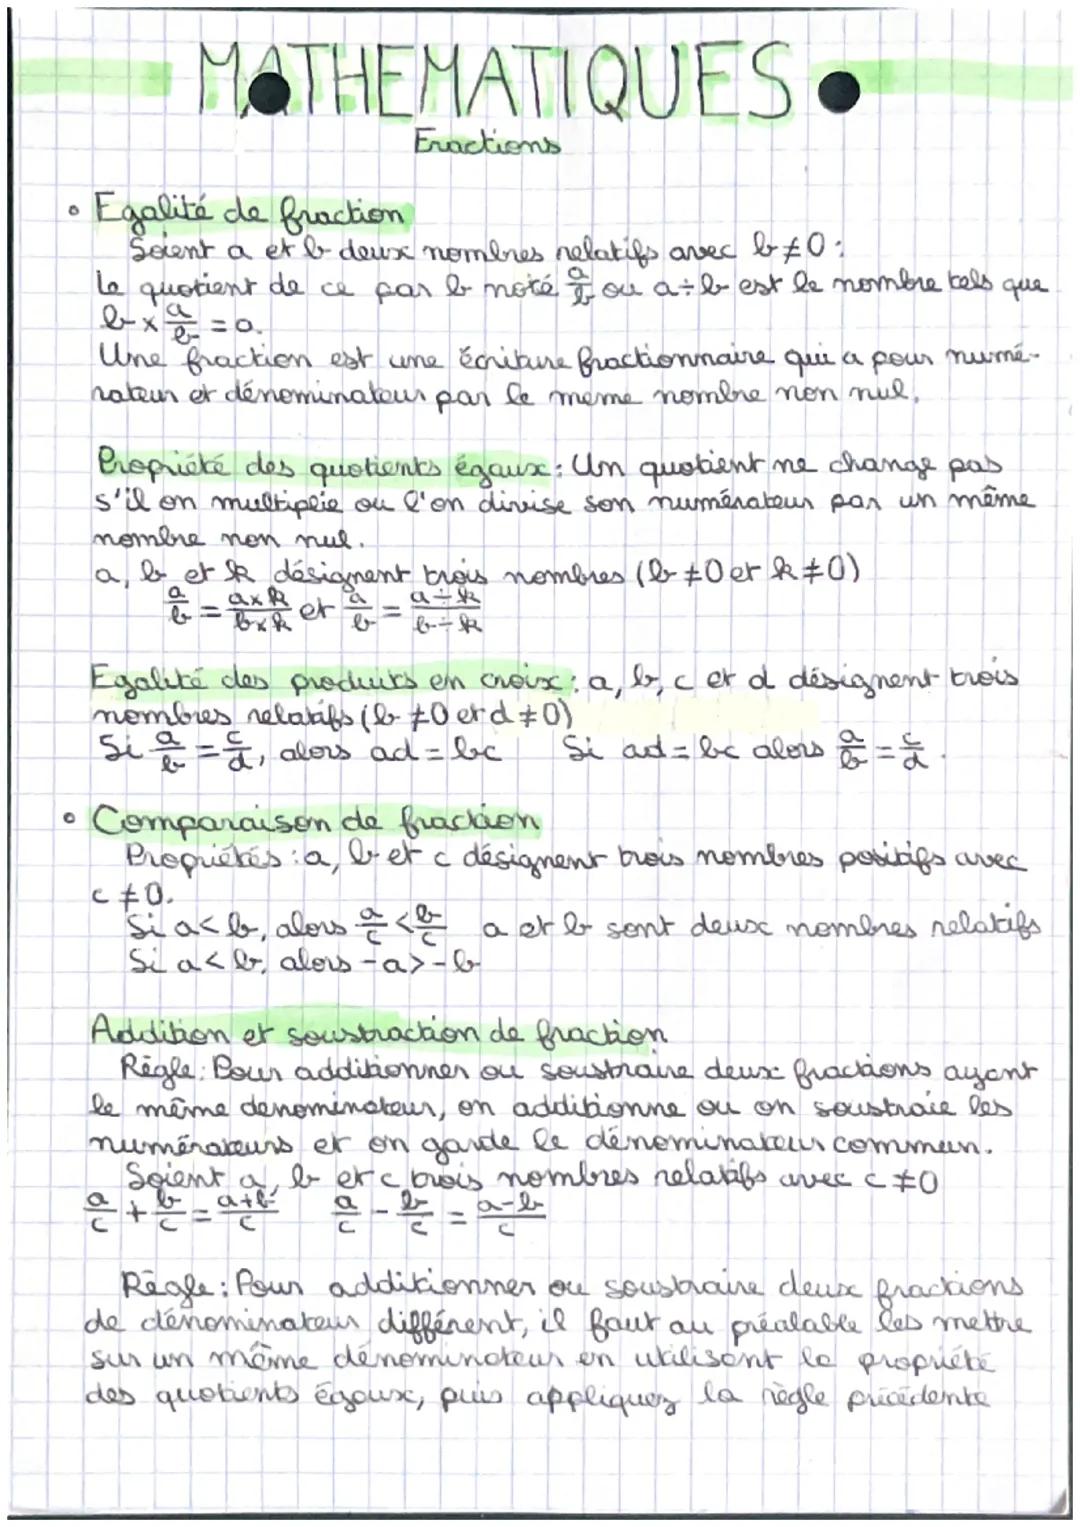 MATHEMATIQUES
Fractions
• Egalité de fraction
Soient a et b deux nombres relatifs avec b ≠ 0 :
Le quotient de ce par b noté a/b ou a÷b est le nombre tels que
b × a/b = a.
Une fraction est une écriture fractionnaire qui a pour numé-
rateur et dénominateur par le meme nombre non nul.
Propriété des quotients égaux : Un quotient ne change pas
s'il on multiplie ou l'on divise son numérateur par un même
nombre non nul.
a, b et k désignent trois nombres (b ≠ 0 et k ≠ 0)
a/b = a×k/b×k et a/b = a÷k/b÷k
Egalité des produits en croix : a, b, c et d désignent trois
nombres relatifs (b ≠ 0 et d ≠ 0)
Si a/b = c/d, alors ad = bc Si ad = bc alors a/b = c/d.
• Comparaison de fraction
Propriétés : a, b et c désignent trois nombres positifs avec
c ≠ 0.
Si a < b, alors a/c < b/c a et b sont deux nombres relatifs
Si a < b, alors -a > -b
Addition et soustraction de fraction
Règle : Pour additionner ou soustraire deux fractions ayant
le même denominateur, on additionne ou on soustraie les
numérateurs et on garde le dénominateur commun.
Soient a, b et c trois nombres relatifs avec c ≠ 0
a/c + b/c = a+b/c a/c - b/c = a-b/c
Règle : Pour additionner ou soustraire deux fractions
de dénominateur différent, il faut au préalable les mettre
sur un même dénominateur en utilisant la propriété
des quotients égaux, puis appliquez la règle précédente